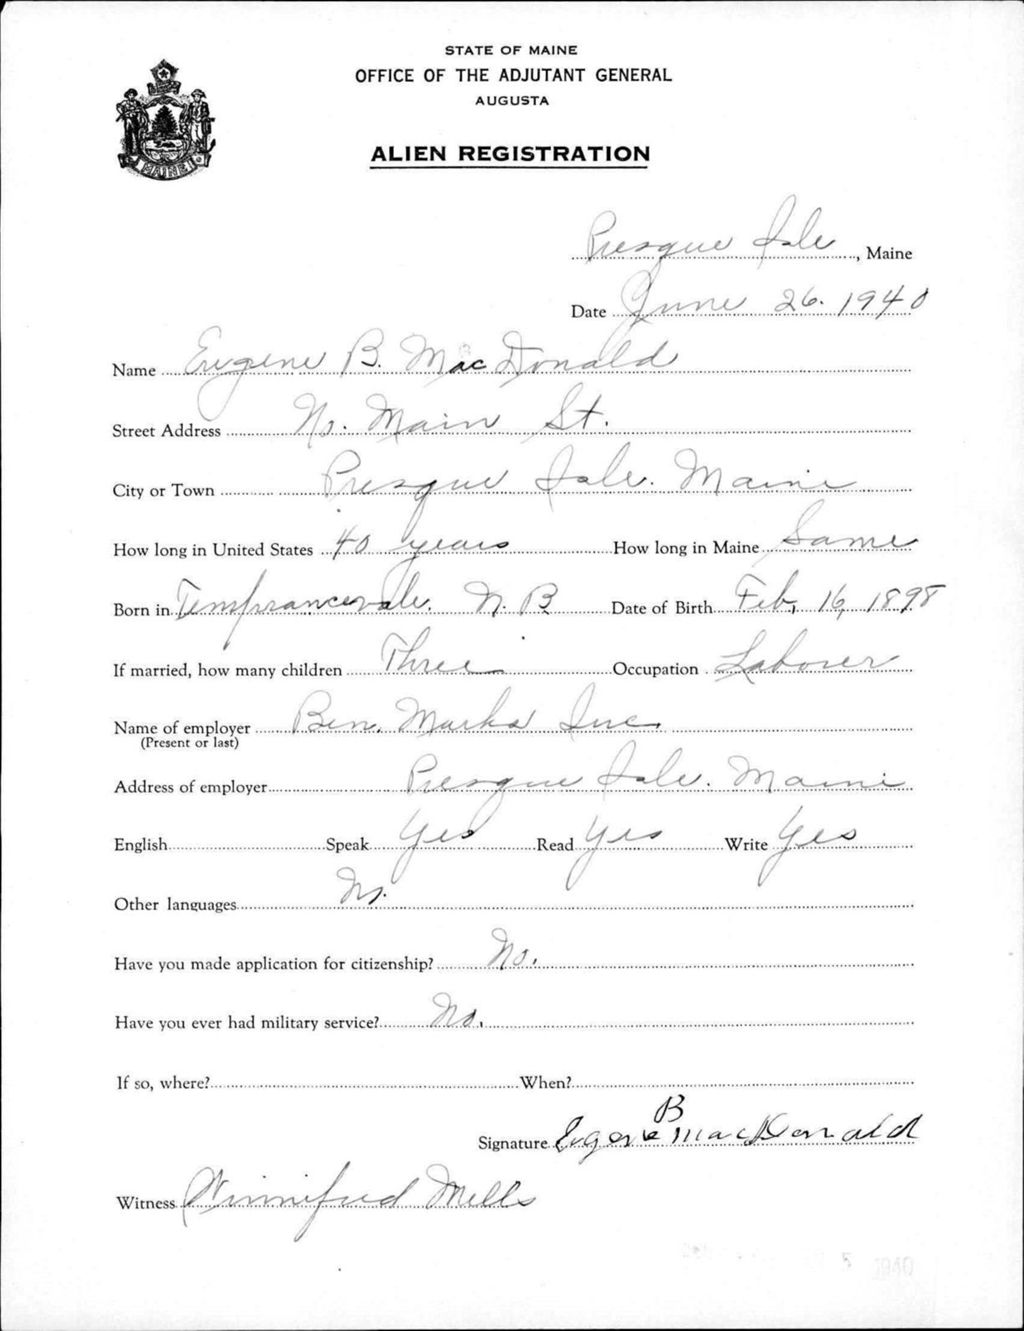 STATE OF MAINE
OFFICE OF THE ADJUTANT GENERAL
AUGUSTA
ALIEN REGISTRATION
MAINE
Presque Isle, Maine
Date June 26. 1940
Name Eugene B. MacDonald
Street Address No. Main St.
City or Town Presque Isle. Maine
How long in United States 40 years How long in Maine Same
Born in Temprancevale. N. B Date of Birth Feb, 16, 1898
If married, how many children Three Occupation Laborer
Name of employer Ben. Marks Inc.
(Present or last)
Address of employer Presque Isle. Maine
English Speak Yes Read Yes Write Yes
Other languages No.
Have you made application for citizenship? No.
Have you ever had military service? No.
If so, where? When?
Signature Eugene B MacDonald
Witness Winnifred Mills
5 1940